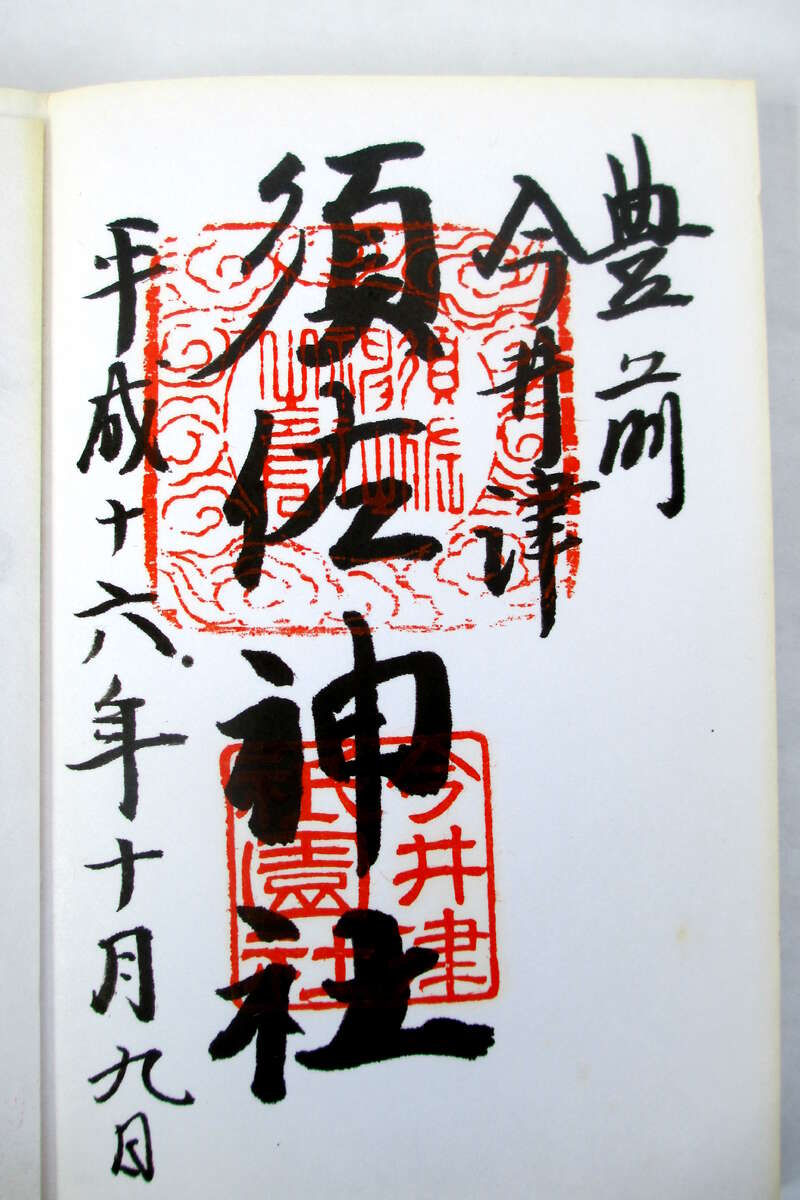 豊前
今井津
須佐神社
平成十六年十月九日
今井津
祇園社